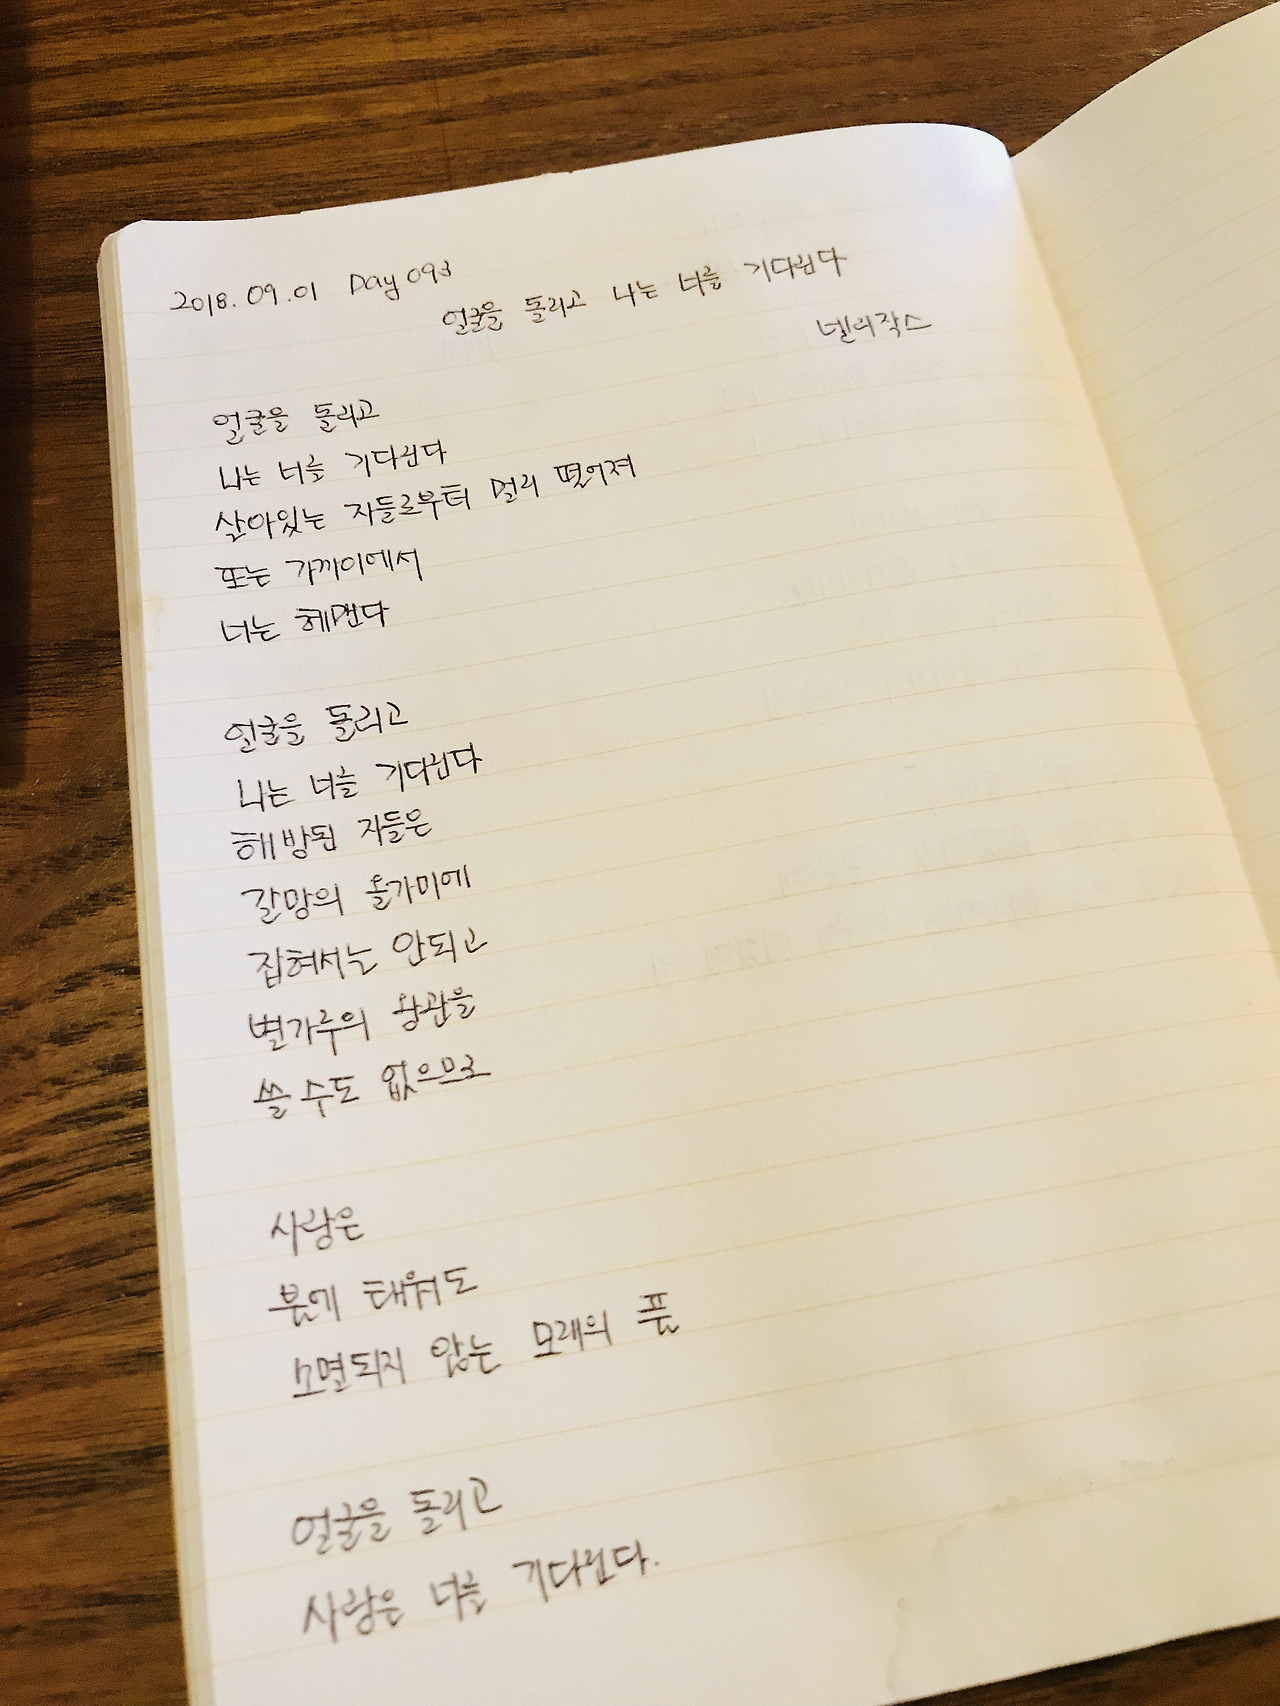 2018. 09. 01 Day 093
얼굴을 돌리고 나는 너를 기다린다
넬리작스
얼굴을 돌리고
나는 너를 기다린다
살아있는 자들로부터 멀리 떨어져
또는 가까이에서
너는 헤맨다
얼굴을 돌리고
나는 너를 기다린다
해방된 자들은
갈망의 올가미에
잡혀서는 안되고
별가루의 왕관을
쓸 수도 없으므로
사랑은
불에 태워도
소멸되지 않는 모래의 풀
얼굴을 돌리고
사랑은 너를 기다린다.